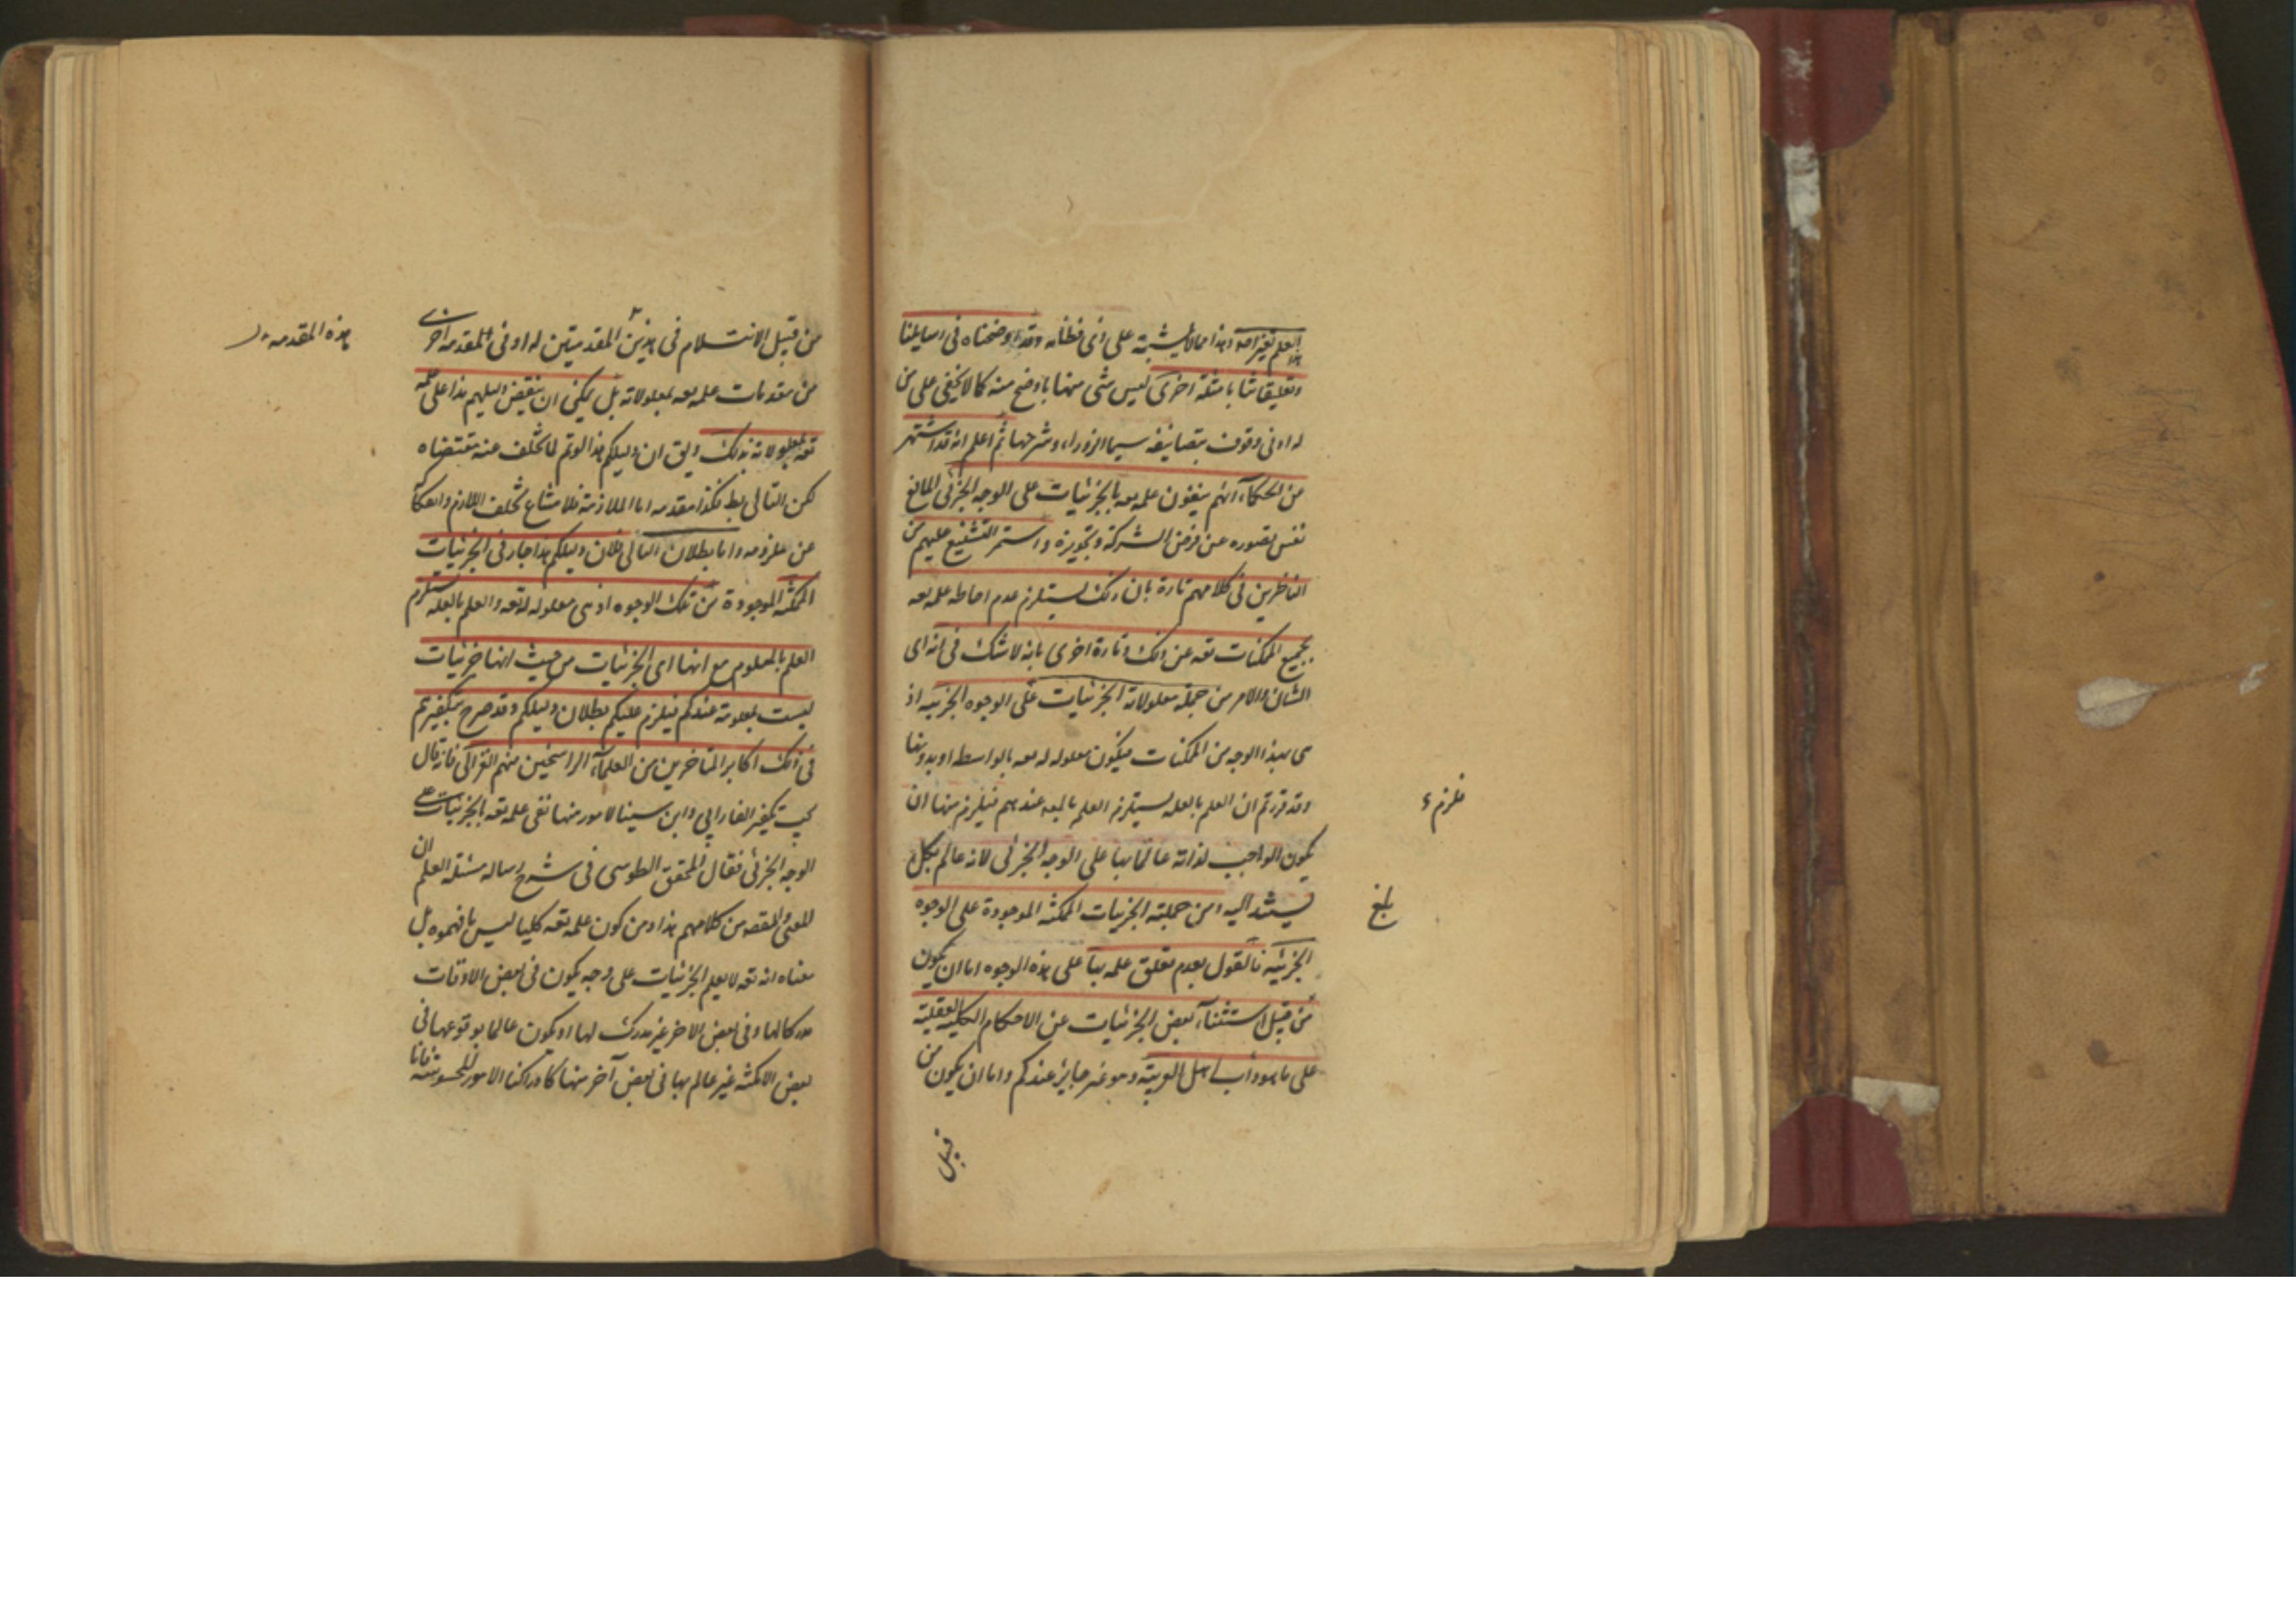 العلم بغيرامه وهذا مما لا يشتبه على ذي فطانه وقد اوضحناه في رسايلنا
هذا
وتعليقاتنا بامثلة اخرى ليس شئ منها باوضح منه كما لا يخفى على من
له ادنى وقوف بتصانيفه سيما الزوراء وشرحها ثم اعلم انه قد اشتهر
من الحكماء انهم ينفون علمه تعه بالجزئيات على الوجه الجزئى المانع
نفس تصوره عن فرض الشركة وتجويزه واستمر التشنيع عليهم من
الناظرين في كلامهم تارة بان ذلك يستلزم عدم احاطه علمه تعه
بجميع الممكنات تعه عن ذلك وتارة اخرى بانه لا شك في انه اى
الشان والامر من جملة معلولاته الجزئيات على الوجوه الجزئيه اذ
هى بهذا الوجه من الممكنات فيكون معلوله له تعه بالواسطه او بدونها
وقد قررتم ان العلم بالعله يستلزم العلم بالمعه عندهم فيلزم منها ان
فلزم
يكون الواجب لذاته عالما بها على الوجه الجزئى لانه عالم بكل ما
يستند اليه ومن جملته الجزئيات الممكنه الموجودة على الوجوه
بلغ
الجزئيه فالقول بعدم تعلق علمه بها على هذه الوجوه اما ان يكون
من قبيل استثناء بعض الجزئيات عن الاحكام الكليه العقليه
على ما هو داب اهل العربية وهو غير جايز عندكم واما ان يكون من
قبيل
من قبيل الانثلام في هذين المقدمتين له او في المقدمه اخرى
هذه المقدمه
من مقدمات علمه تعه بمعلولاته بل يمكن ان ينقض دليلهم هذا على علمه
تعه بمعلولاته بذلك ويق ان دليلكم هذا لو تم لما تخلف عنه مقتضاه
لكن التالى بط فكذا مقدمه اما الملازمة فلامتناع تخلف اللازم وانفكاكه
عن ملزومه واما بطلان التالى فلان دليلكم هذا جار في الجزئيات
الممكنه الموجودة من تلك الوجوه اذ هى معلوله له تعه والعلم بالعله يستلزم
العلم بالمعلوم مع انها اى الجزئيات من حيث انها جزئيات
ليست بمعلومة عندكم فيلزم عليكم بطلان دليلكم وقد صرح بتكفيرهم
في ذلك اكابر المتاخرين من العلماء الراسخين منهم الغزالى فانه قال
يجب تكفير الفارابي وابن سينا لامور منها نفى علمه تعه بالجزئيات على
الوجه الجزئى فقال المحقق الطوسى في شرح رساله مسئلة العلم ان
المعنى المقصه من كلامهم هذا ومن كون علمه تعه كليا ليس ما فهموه بل
معناه انه تعه لا يعلم الجزئيات على وجه يكون في بعض الاوقات
مدركا لها وفى بعض الاخر غير مدرك لها او يكون عالما بوقوعها في
بعض الامكنه غير عالم بها في بعض آخر منها كادراكنا الامور المحسوسه